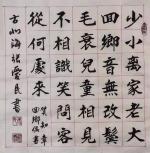 少小離家老大
回鄉音無改鬢
毛衰兒童相見
不相識笑問客
從何處來
賀知章
回鄉偶書
海張愛民書